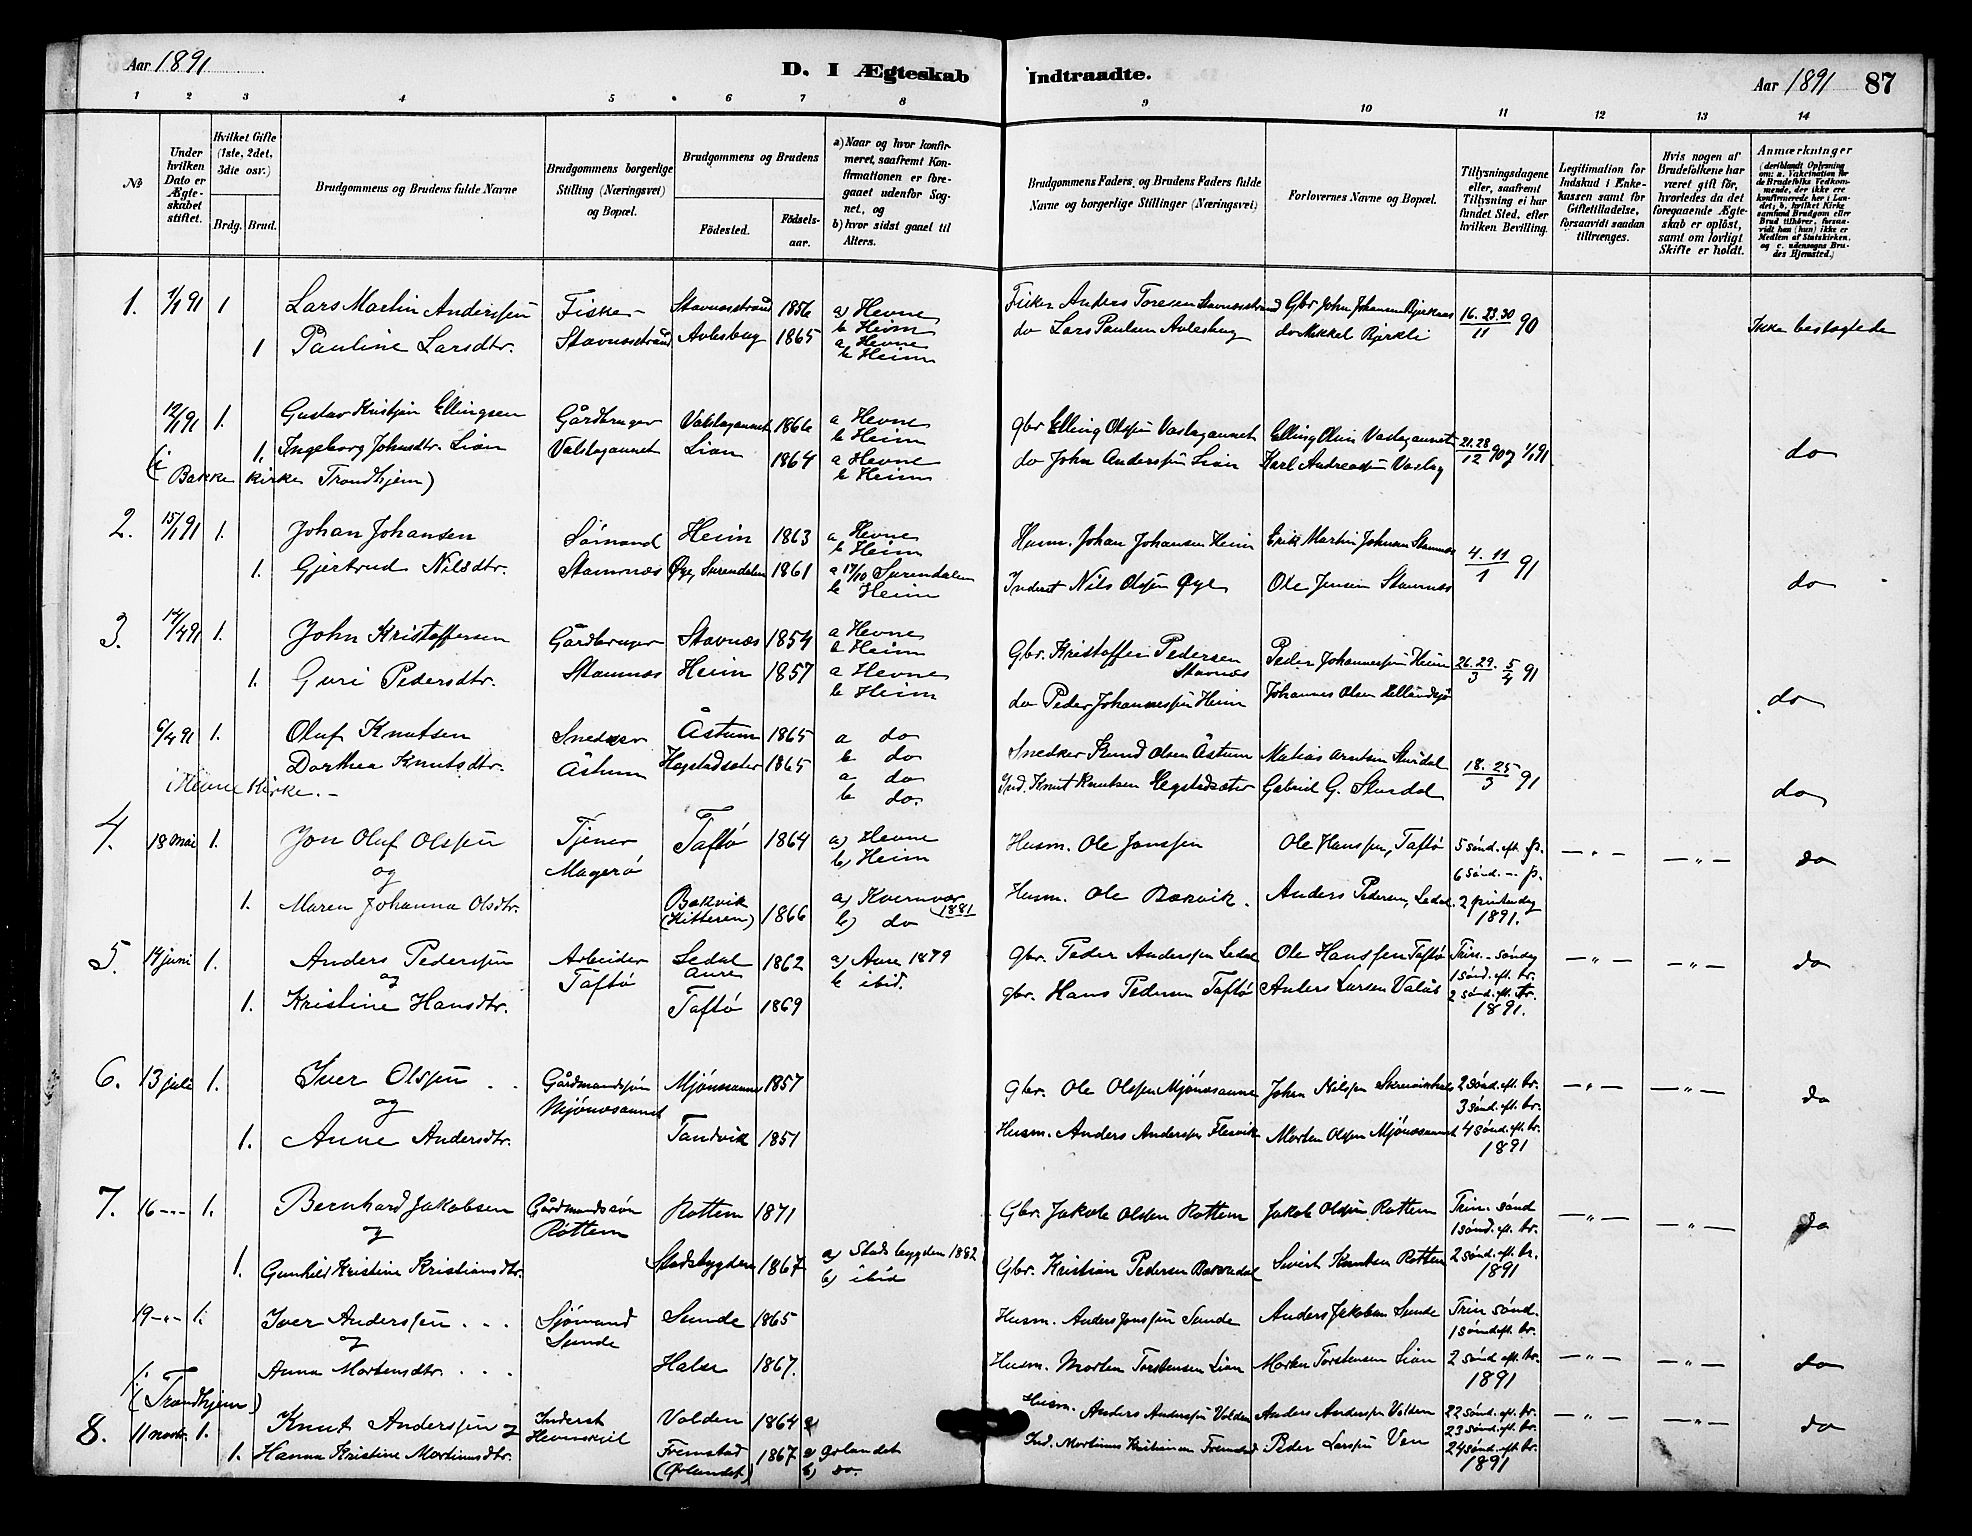 Aar 1891
D. I Ægteskab Indtraadte.
Aar 1891 87
1 2 3 4 5 6 7 8 9 10 11 12 13 14
№
Under hvilken Dato er Ægteskabet stiftet.
Hvilket Gifte (1ste, 2det, 3die osv.)
Brdg. Brud.
Brudgommens og Brudens fulde Navne
Brudgommens borgerlige Stilling (Næringsvei) og Bopæl.
Brudgommens og Brudens
Fødested.
Fødselsaar.
a) Naar og hvor konfirmeret, saafremt Konfirmationen er foregaaet udenfor Sognet, og
b) hvor sidst gaaet til Alters.
Brudgommens Faders, og Brudens Faders fulde Navne og borgerlige Stillinger (Næringsvei)
Forlovernes Navne og Bopæl.
Tillysningsdagene eller, saafremt Tillysning ei har fundet Sted, efter hvilken Bevilling.
Legitimation for Indskud i Enkekassen samt for Giftetilladelse, forsaavidt saadan tiltrænges.
Hvis nogen af Brudefolkene har været gift før, hvorledes da det foregaaende Ægteskab er opløst, samt om lovligt Skifte er holdt.
Anmærkninger
(deriblandt Oplysning om: a. Vakcination for de Brudefolks Vedkommende, der ikke ere konfirmerede her i Landet; b. hvilket Kirkesamfund Brudgom eller Brud tilhører, forsaavidt han (hun) ikke er Medlem af Statskirken, og c. udensogns Brudes Hjemsted.)
1. 1/1 91 1 Lars Martin Anderssen Fisker Stavnesstrand 1856 a) Hevne b Heim Fisker Anders Toresen Stavnesstrand Gbr John Johansen 16. 23. 30/11 90
1 Pauline Larsdtr. Stavnesstrand 1865 a Hevne b Heim do Lars Paulsen do Mikkel Ikke beslægtede
12/1 91 1. Gustav Kristjan Ellingsen Gårdbruger 1866 a Hevne b Heim gbr Elling Olssen 21. 28/12 90 og 1/1 91
1. Ingeborg Johnsdtr. Lian Lian 1864 a Hevne b Heim do John Anderssen Lian Karl Andreassen Vaslag do
(i Bakke kirke Trondhjem)
2. 15/1 91 1. Johan Johansen Sømand Heim 1863 a Hevne b Heim Husm. Johan Johansen Heim Erik Martin Johnsen Stamnes 4. 11/1 91
1. Gjertrud Nilsdtr. Stamnæs Øye, Surendalen 1861 a 17/10 Surendalen b Heim Inderst Nils Olssen Øye Ole Jensen Stamnes do
3. 14/4 91 1. John Kristoffersen Gårdbruger Stavnæs 1854 a Hevne b Heim Gbr. Kristoffer Pedersen Stavnæs Peder Johannessen Heim 26. 29./3 5/4 91
1. Guri Pedersdtr. Stamnæs Heim 1857 a Hevne b Heim do Peder Johannessen Heim Johannes Olsen do
6/4 91 1. Oluf Knutsen Snedker Åstum 1865 a do b do Snedker Knud Olsen Åstum Matias Arntsen 18. 25/3 91
Dorthea Knutsdtr. Åstum 1865 a do b do. Ind. Knut Knutsen Hegstadsæter Gabriel G. do
i Hevne Kirke.–
4. 18 mai 1. Jon Oluf Olssen Tjener Taftø 1864 a) Hevne b) Heim Husm. Ole Jonssen Ole Hanssen, Taftø 5 sønd. eft. p. 6 sønd. — p. — " — — " — do
og Magerø
1. Maren Johanna Olsdtr. Bakvik (Hitteren) 1866 a) Kvenvær 1881 b) do Husm. Ole Anders Pedersen, Ledal 2 pintsedag 1891.
5. 14 juni 1. Anders Pederssen Arbeider Ledal Aure 1862 a) Aure 1879 b ibid. gbr. Peder Anderssen Ledal Ole Hanssen Taftø Trin. – søndag 1 sønd. eft. tr. — " — — " — do
og Taftø
1. Kristine Hansdtr. Taftø 1869 gbr. Hans Pedersen Taftø Anders Larsen 2 sønd. eft. tr. 1891.
6. 13 juli 1. Iver Olssen Gårdmandssøn Mjønessaunet 1857 gbr. Ole Olssen Mjønessaunet John Nilssen 2 sønd. eft. tr. 3 sønd. eft. tr. — " — — " — do
og Mjønessaunet
1. Anne Andersdtr. Tandvik 1851 Husm. Anders Anderssen Flesvik Morten Olssen Mjønessaunet 4 sønd. eft. tr. 1891
7. 16 --- 1. Bernhard Jakobsen Gårdmandssøn Rottem 1871 Gbr. Jakob Olssen Rottem Jakob Olssen Rottem Trin. sønd 1 sønd. eft. tr. — " — — " — do
og Rottem
1. Gunhild Kristine Kristiansdtr. Stadsbygden 1867 a) Stadsbygden 1882 b) ibid Gbr. Kristian Pedersen Sivert Knutsen Rottem 2 sønd. eft. tr. 1891
19 -"- 1. Iver Anderssen Sjømand Sunde 1865 Husm. Anders Jonssen Sunde Anders Jakobsen Sunde Trin sønd. 1 sønd eft. tr.
og Sunde
Anna Mortensdtr. Halse 1867. Husm. Morten Torstensen Lian Morten Torstensen Lian 2 sønd. eft. tr. 1891 — " — — " — do
(i Trondhjem)
8. 11 novbr. 1. Knut Anderssen og Inderst Volden 1864 Husm. Anders Anderssen Volden Anders Anderssen Volden 22 sønd. eft. tr. 23 sønd. eft. tr. — " — — " — do
1. Hanna Kristine Martinusdtr. Fremstad (Ørlandet) 1867 a) Ørlandet b) do. Ind. Martinus Kristiansen Fremstad Peder Larssen Ven 24 sønd. eft. tr. 1891